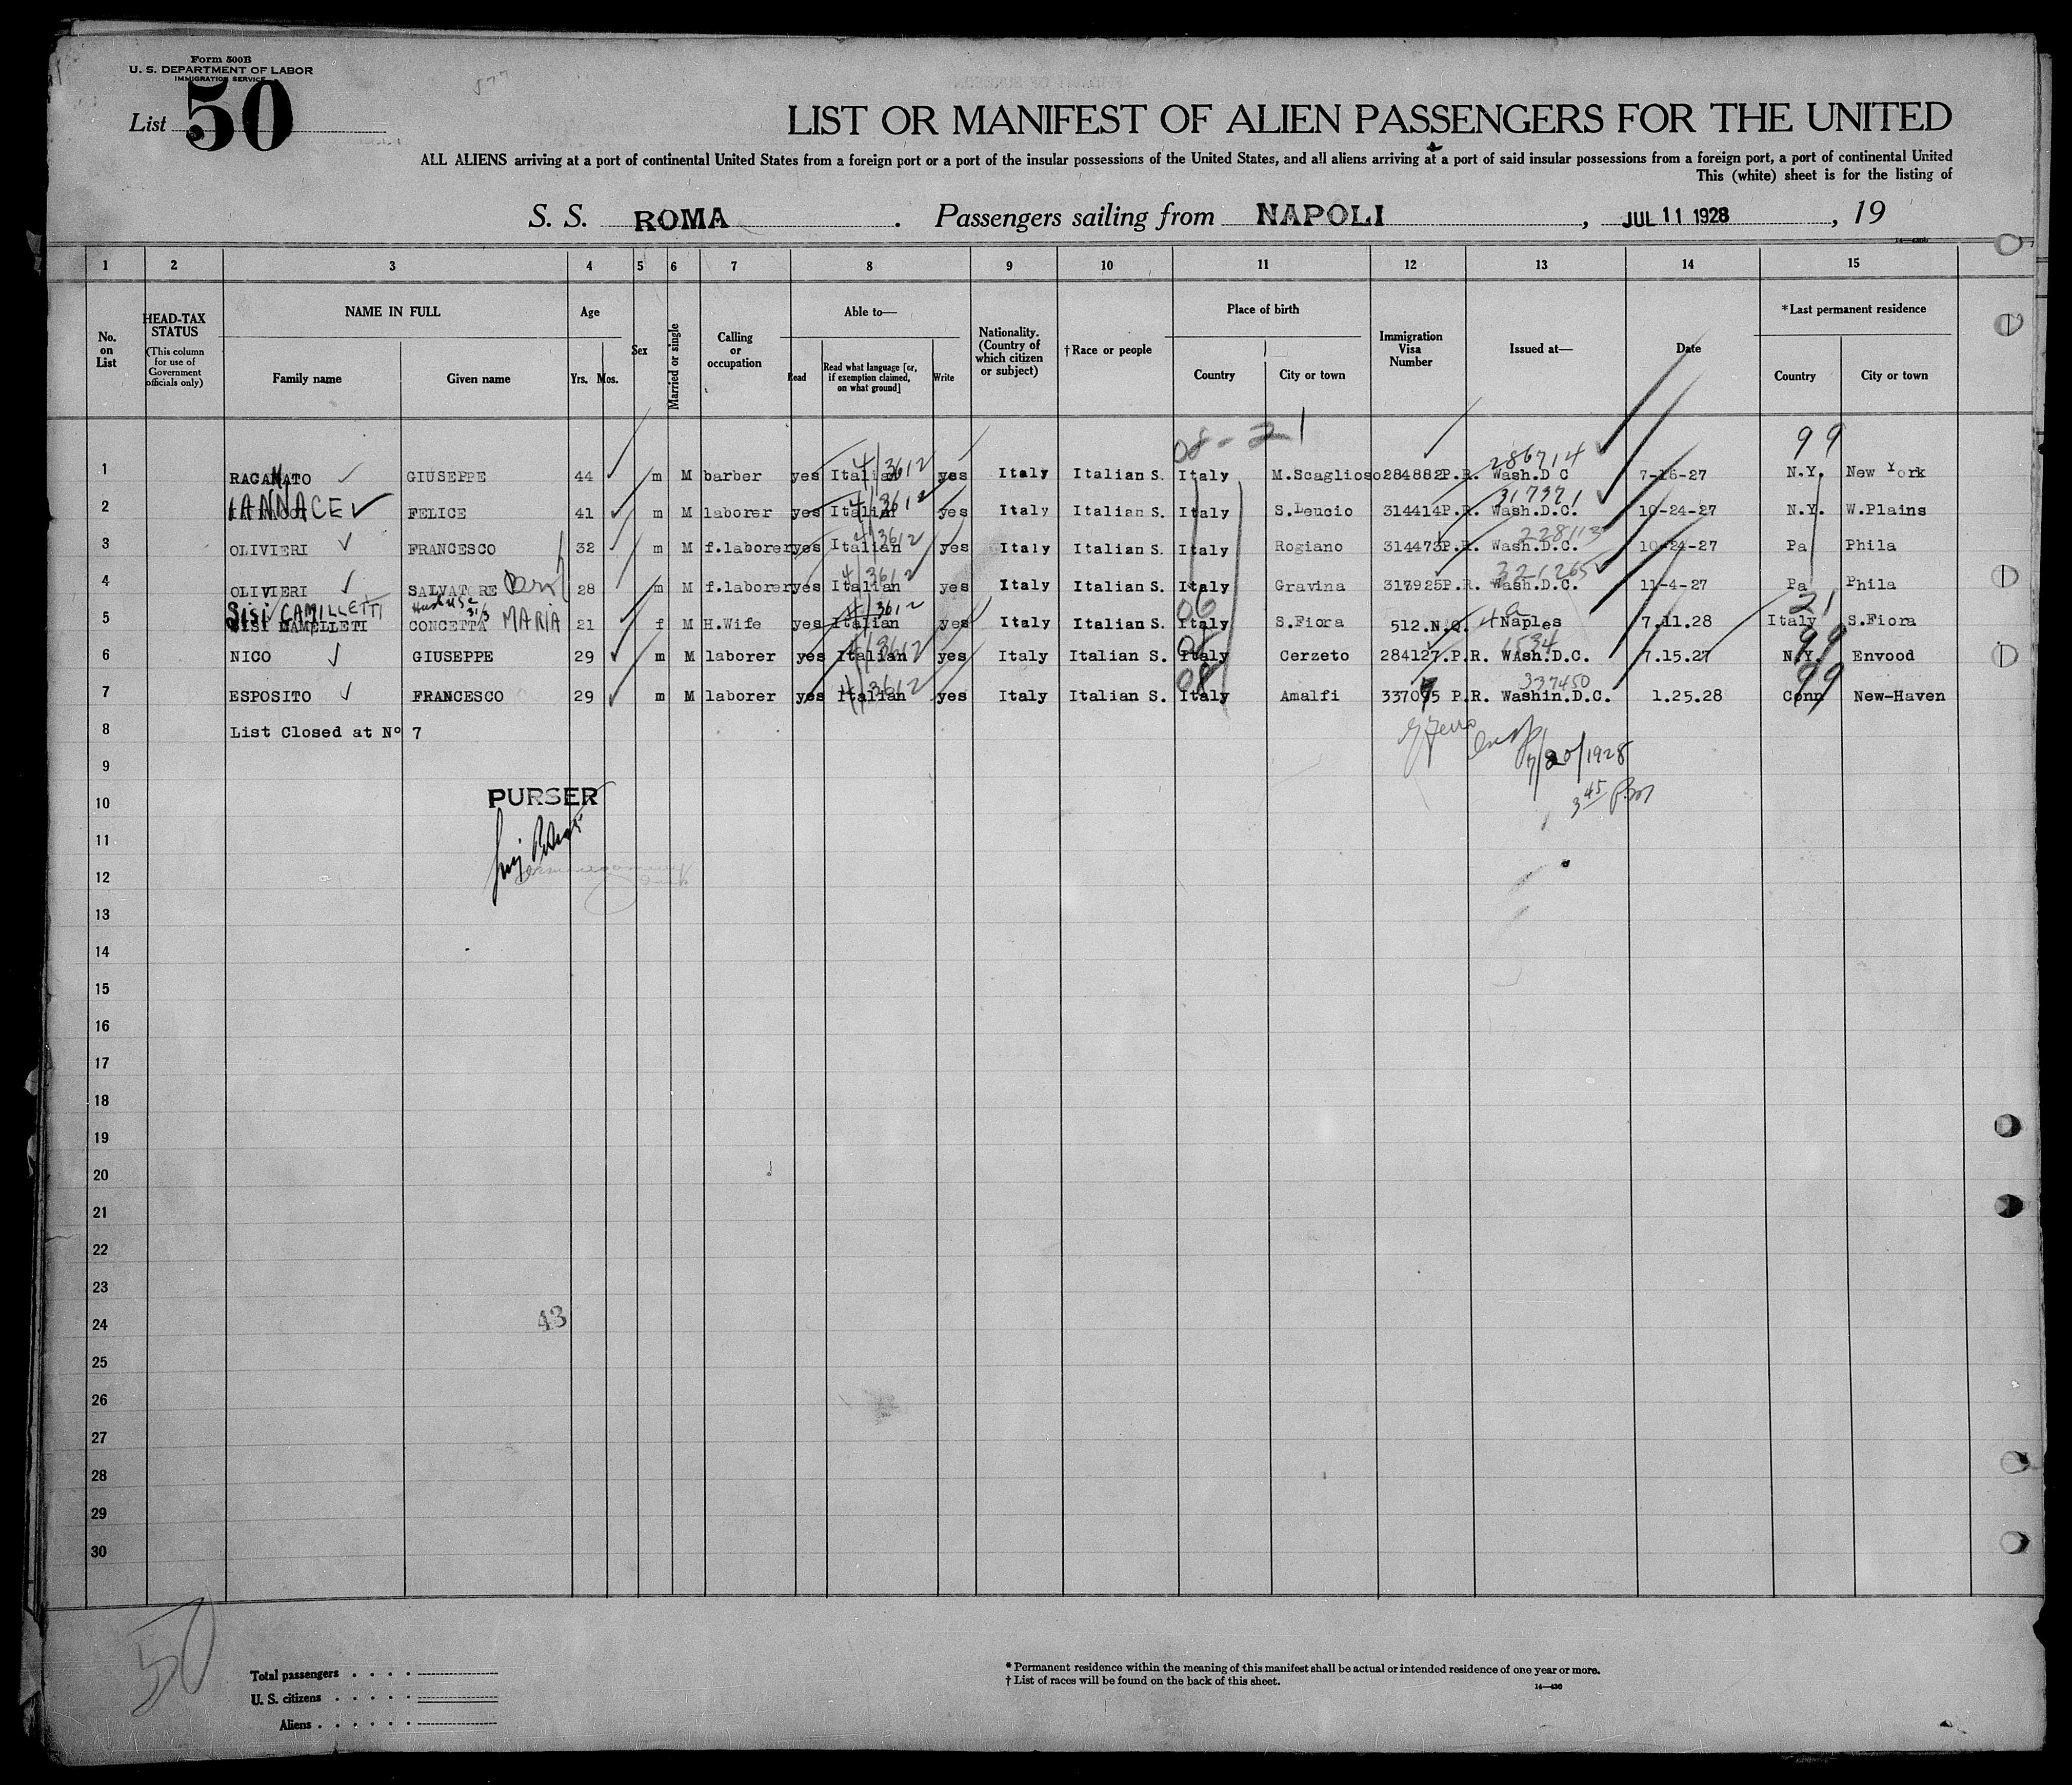 Form 500B
U. S. DEPARTMENT OF LABOR
IMMIGRATION SERVICE
List 50
LIST OR MANIFEST OF ALIEN PASSENGERS FOR THE UNITED
ALL ALIENS arriving at a port of continental United States from a foreign port or a port of the insular possessions of the United States, and all aliens arriving at a port of said insular possessions from a foreign port, a port of continental United
This (white) sheet is for the listing of
S. S. ROMA . Passengers sailing from NAPOLI , JUL 11 1928 , 19
1 2 3 4 5 6 7 8 9 10 11 12 13 14 15
No. on List
HEAD-TAX STATUS
(This column for use of Government officials only)
NAME IN FULL
Family name Given name
Age
Yrs. Mos.
Sex
Married or single
Calling or occupation
Able to—
Read
Read what language [or, if exemption claimed, on what ground]
Write
Nationality. (Country of which citizen or subject)
†Race or people
Place of birth
Country City or town
Immigration Visa Number
Issued at—
Date
*Last permanent residence
Country City or town
08-21 99
286714
1 RACANATO GIUSEPPE 44 m M barber yes Italian 4/3612 yes Italy Italian S. Italy M.Scaglioso 284882 P.R. Wash.D C 7-16-27 N.Y. New York
317371
2 IANNACE FELICE 41 m M laborer yes Italian 4/3612 yes Italy Italian S. Italy S.Leucio 314414 P.R. Wash.D.C. 10-24-27 N.Y. W.Plains
228113
3 OLIVIERI FRANCESCO 32 m M f.laborer yes Italian 4/3612 yes Italy Italian S. Italy Rogiano 314473 P.R. Wash.D.C. 10-24-27 Pa Phila
321265
4 OLIVIERI SALVATORE 28 m M f.laborer yes Italian 4/3612 yes Italy Italian S. Italy Gravina 317925 P.R. Wash.D.C. 11-4-27 Pa Phila
SISI CAMILLETTI 06 21
5 SISI CAMELLETI CONCETTA MARIA 21 f M H.Wife yes Italian 4/3612 yes Italy Italian S. Italy S.Fiora 512.N.Q. Naples 7.11.28 Italy S.Fiora
1534 99
6 NICO GIUSEPPE 29 m M laborer yes Italian 4/3612 yes Italy Italian S. Italy Cerzeto 284127.P.R. WAsh.D.C. 7.15.27 N.Y. Envood
08 337450 99
7 ESPOSITO FRANCESCO 29 m M laborer yes Italian 4/3612 yes Italy Italian S. Italy Amalfi 337095 P.R. Washin.D.C. 1.25.28 Conn New-Haven
8 List Closed at Nº 7
9
7/20/1928
10 PURSER
3 45 P.M
11
12
13
14
15
16
17
18
19
20
21
22
23
24 43
25
26
27
28
29
30
50
Total passengers
U. S. citizens
Aliens
* Permanent residence within the meaning of this manifest shall be actual or intended residence of one year or more.
† List of races will be found on the back of this sheet.
14—430